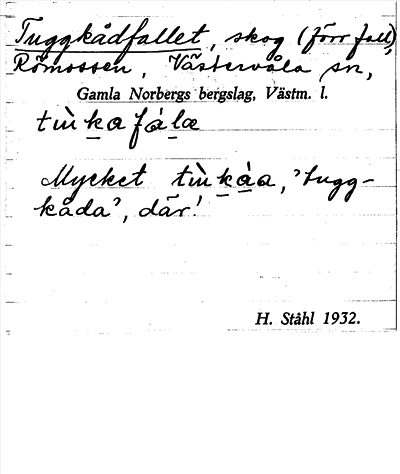 Tuggkådfallet, skog (förr fall),
Römossen, Västervåla sn,
Gamla Norbergs bergslag, Västm. l.
tɯ̀kafálæ
Mycket tɯ̀kàa, 'tugg-
kåda', där!
H. Ståhl 1932.